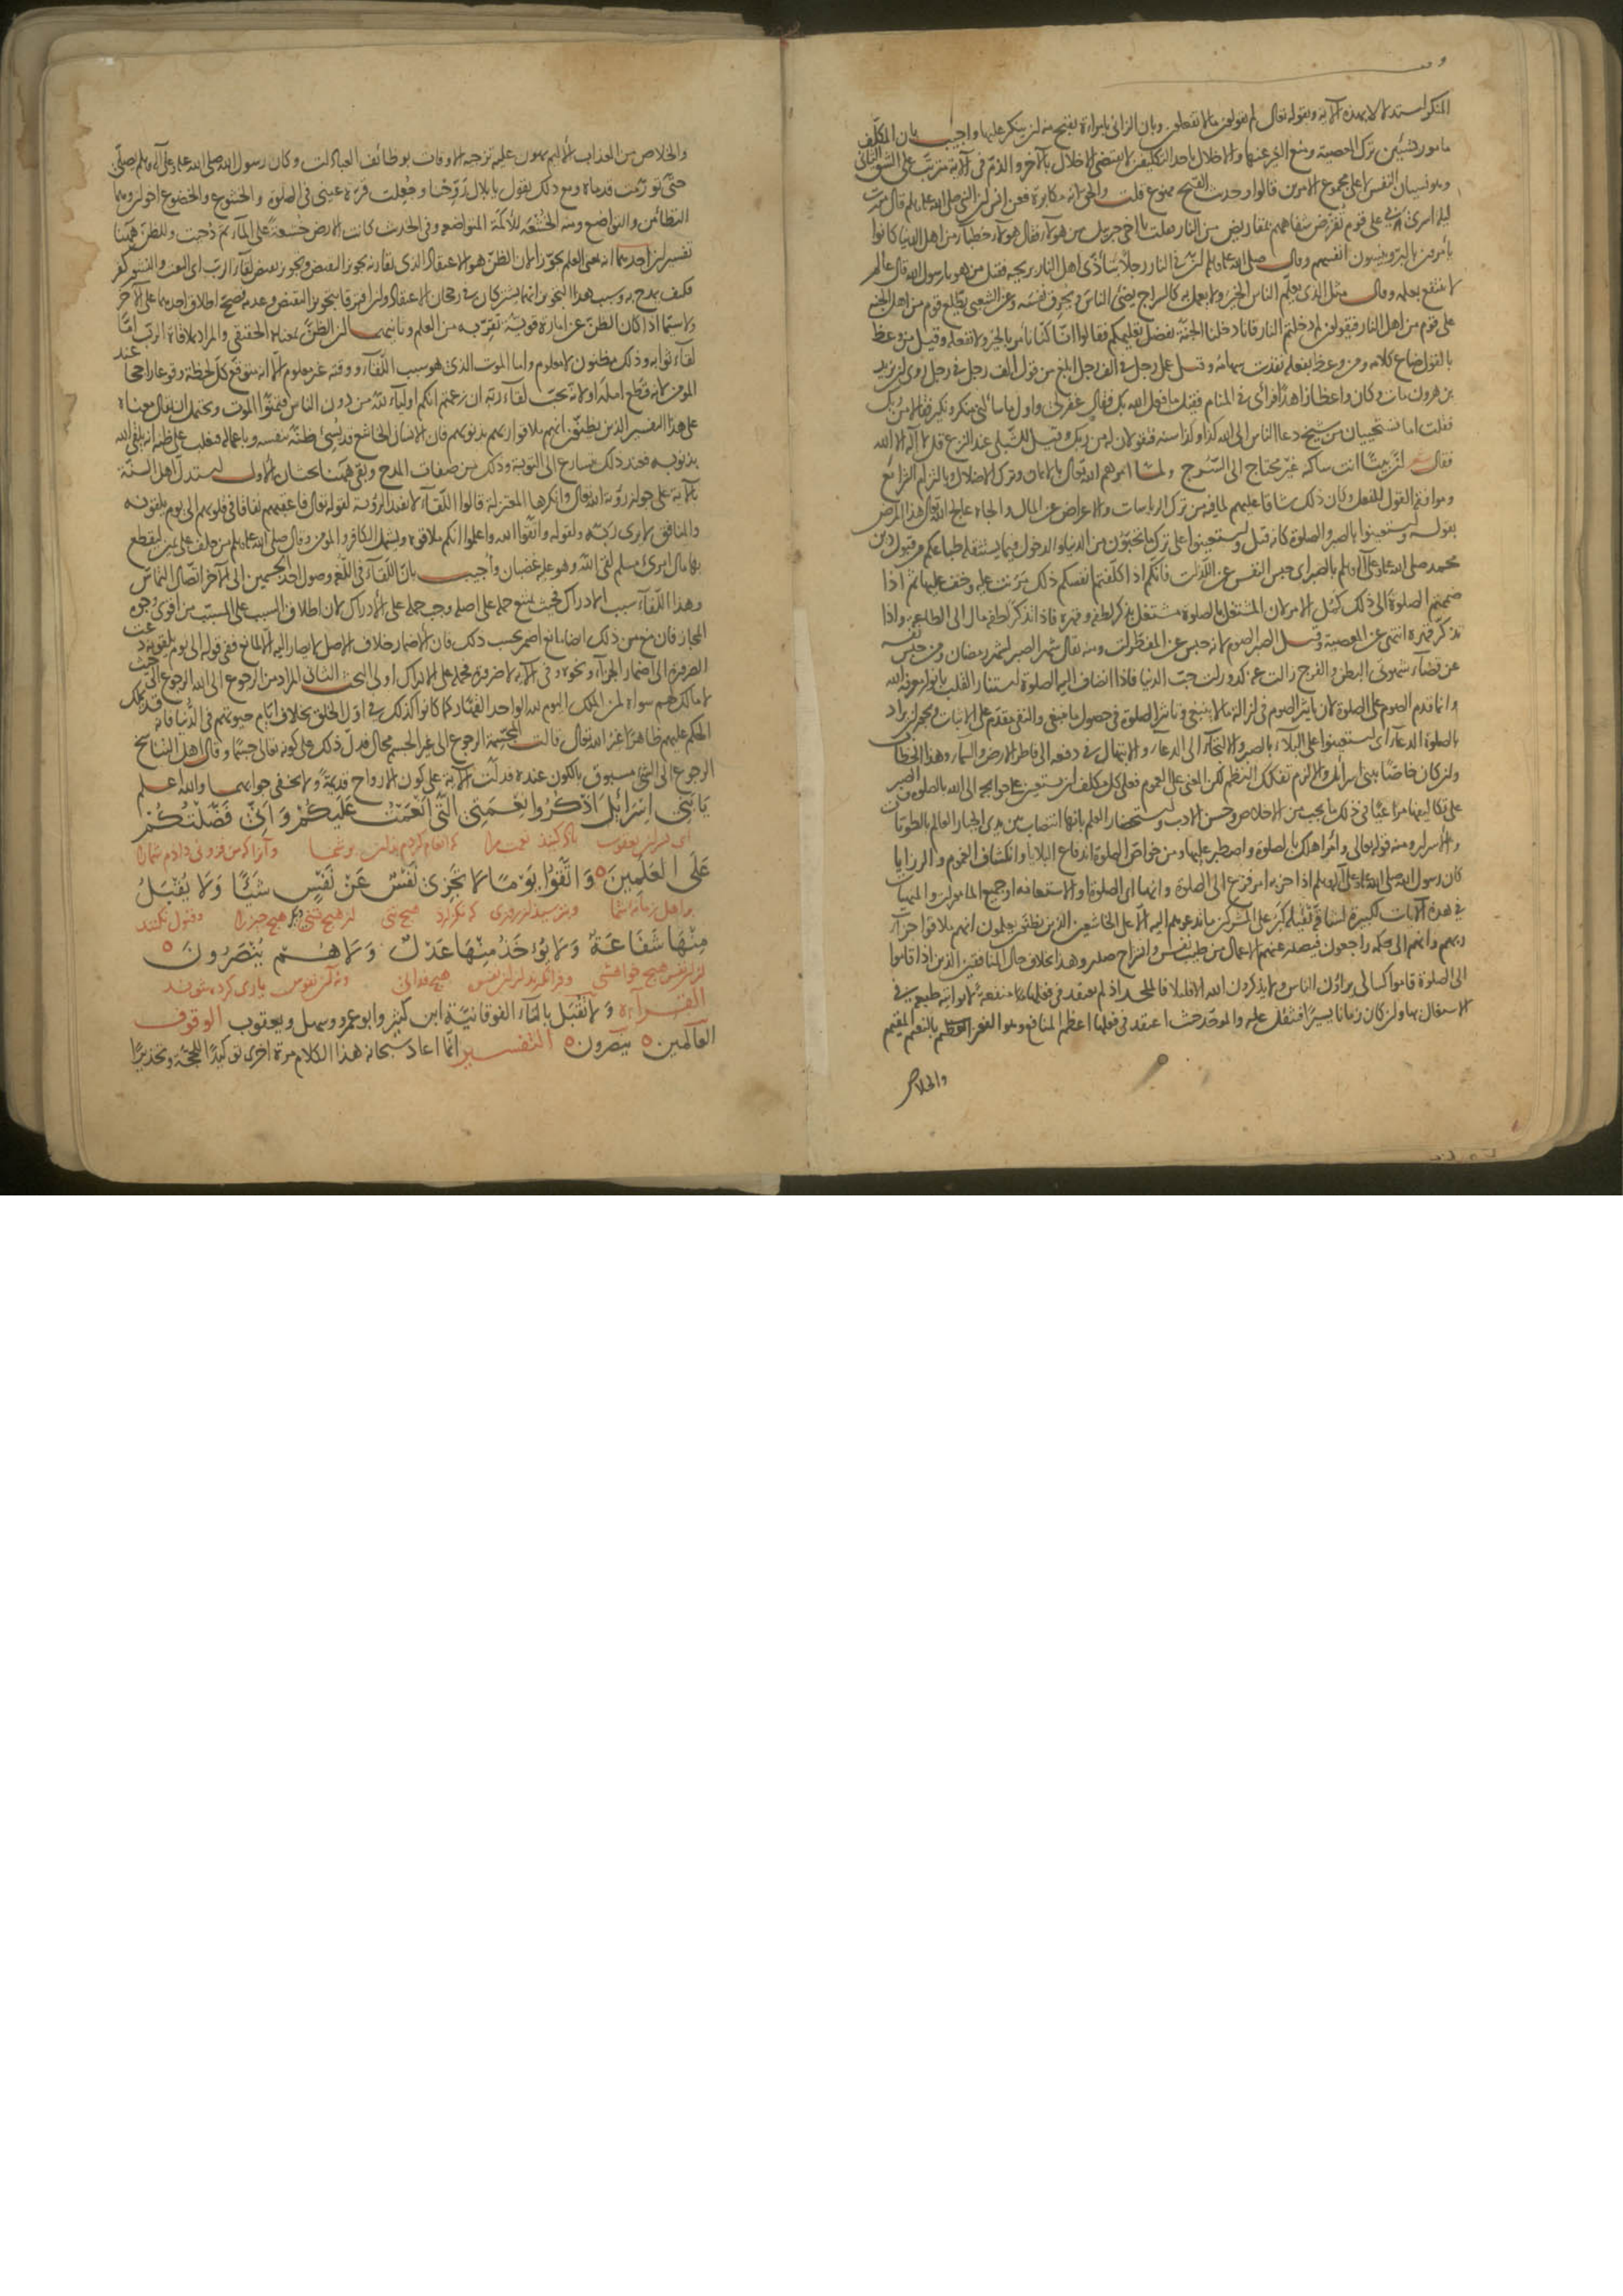 المنكر استدلالا بهذه الآية وبقوله تعالى لم تقولون ما لا تفعلون وبان الزانى بامراة يقبح منه ان ينكر عليها واجيب بان المكلف
مامور بشيئين ترك المعصية ومنع الغير عنها والاخلال باحد التكليفين لا يقتضى الاخلال بالآخر والذم فى الآية مترتب على الشق الثانى
وهو نسيان النفس لا على مجموع الامرين قالوا وحديث القبح ممنوع قلت والحق انه مكابرة فعن انس ان النبى صلى الله عليه وسلم قال مررت
ليلة اسرى بى على قوم تقرض شفاههم بمقاريض من النار فقلت يا اخى جبريل من هولاء فقال هولاء خطباء من اهل الدنيا كانوا
يأمرون بالبر وينسون انفسهم وقال صلى الله عليه وسلم ان فى النار رجلا يتأذى اهل النار بريحه فقيل من هو يا رسول الله قال عالم
لا ينتفع بعلمه وقال مثل الذى يعلم الناس الخير ولا يعمل به كالسراج يضئ الناس ويحرق نفسه وعن الشعبى يطلع قوم من اهل الجنة
على قوم من اهل النار فيقولون لم دخلتم النار فانا دخلنا الجنة بفضل تعليمكم فقالوا انا كنا نأمر بالخير ولا نفعله وقيل من وعظ
بالقول ضاع كلامه ومن وعظ بفعله نفذت سهامه وقيل عمل رجل فى الف رجل ابلغ من قول الف رجل فى رجل روى ان يزيد
بن هرون مات وكان واعظا زاهدا فرأى فى المنام فقيل ما فعل الله بك فقال غفر لى واول ما سألنى منكر ونكير فقالا من ربك
فقلت اما تستحييان من شيخ دعا الناس الى الله كذا وكذا سنة فتقولان له من ربك وقيل للشبلى عند النزع قل لا اله الا الله
فقال ان بيتا انت ساكنه غير محتاج الى السرج ولما امرهم الله تعالى بالايمان وترك الاضلال وبالتزام الشرائع
وموافقة القول للفعل وكان ذلك شاقا عليهم لما فيه من ترك الرياسات والاعراض عن المال والجاه عالج الله تعالى هذا المرض
بقوله واستعينوا بالصبر والصلوة كانه قيل واستعينوا على ترك ما تحبون من الدنيا والدخول فيما يستثقله طباعكم من قبول دين
محمد صلى الله عليه وعلى آله وسلم بالصبر اى حبس النفس عن اللذات فانكم اذا كلفتم انفسكم ذلك مرنت عليه وخف عليها ثم اذا
ضممتم الصلوة الى ذلك كمل الامر لان المشتغل بالصلوة مشتغل بذكر لطفه وقهره فاذا تذكر لطفه مال الى الطاعة واذا
تذكر قهره انتهى عن المعصية وقيل الصبر الصوم لانه حبس عن المفطرات ومنه يقال شهر الصبر لشهر رمضان ومن حبس نفسه
عن قضاء شهوتى البطن والفرج زالت عنه كدورات حب الدنيا فاذا انضاف اليه الصلوة استنار القلب بانوار معرفة الله
وانما قدم الصوم على الصلوة لان تاثير الصوم فى ازالة ما لا ينبغى وتاثير الصلوة فى حصول ما ينبغى والنفى مقدم على الاثبات ويجوز ان يراد
بالصلوة الدعاء اى استعينوا على البلاء بالصبر والالتجاء الى الدعاء والابتهال فى دفعه الى فاطر الارض والسماء وهذا الخطاب
وان كان خاصا ببنى اسرائيل والا لزم تفكك النظم لكن المعنى على العموم فعلى كل مكلف ان يستعين على حوايجه الى الله بالصلوة والصبر
على تكاليفها مراعيا فى ذلك ما يجب من الاخلاص وحسن الادب واستحضار العلم بانها انتصاب بين يدى الجبار العالم بالطويات
والاسرار ومنه قوله تعالى وأمر اهلك بالصلوة واصطبر عليها ومن خواص الصلوة اندفاع البلايا وانكشاف الغموم والرزايا
كان رسول الله صلى الله عليه وعلى آله وسلم اذا حزبه امر فزع الى الصلوة وانها اى الصلوة او الاستعانة او جميع المامورات والمنهيات
فى هذه الآيات لكبيرة لشاقة ثقيلة كبر على المشركين ما تدعوهم اليه الا على الخاشعين الذين يظنون يعلمون انهم ملاقوا جزاء
ربهم وانهم الى حكمه راجعون فيصدر عنهم الاعمال من طيب نفس وانشراح صدر وهذا بخلاف حال المنافقين الذين اذا قاموا
الى الصلوة قاموا كسالى يراؤن الناس ولا يذكرون الله الا قليلا فالملحد اذ لم يعتقد فى فعلها منفعة ثم لم يواته طبيعته فى
الاشتغال بها وان كان زمانا يسيرا فتثقل عليه والموحد حيث اعتقد فى فعلها اعظم المنافع وهو الفوز العظيم بالنعيم المقيم
والخلاص
والخلاص من العذاب الاليم يهون عليه تزجية الاوقات بوظائف العبادات وكان رسول الله صلى الله عليه وعلى آله وسلم يصلى
حتى تورمت قدماه ومع ذلك يقول يا بلال روحنا وجعلت قرة عينى فى الصلوة والخشوع والخضوع اخوان وهما
التطامن والتواضع ومنه الخشعة للاكمة المتواضعة وفى الحديث كانت الارض خشعة على الماء ثم دحيت وللظن ههنا
تفسيران احدهما انه بمعنى العلم تجوزا لان الظن هو الاعتقاد الذى يقارنه تجويز النقيض وتجويز نقيض لقاء الرب اى البعث والنشور كفر
فكيف يمدح به وسبب هذا التجوز انهما يشتركان فى رجحان الاعتقاد وان افترقا بتجويز النقيض وعدمه فصح اطلاق احدهما على الآخر
ولا سيما اذا كان الظن عن امارة قوية تقربه من العلم وثانيهما ان الظن بمعناه الحقيقى والمراد بملاقاة الرب اما
لقاء ثوابه وذلك مظنون لا معلوم واما الموت الذى هو سبب اللقاء ووقته غير معلوم الا انه متوقع كل لحظة وقوعا راجحا عند
المؤمن لانه قطع امله او لانه يحب لقاء ربه ان زعمتم انكم اولياء لله من دون الناس فتمنوا الموت ويحتمل ان يقال معناه
على هذا التفسير الذين يظنون انهم ملاقوا ربهم بذنوبهم فان الانسان الخاشع قد يسئ ظنه بنفسه وباعماله فيغلب على ظنه انه يلقى الله
بذنوبه فعند ذلك يسارع الى التوبة وذلك من صفات المدح وبقى ههنا بحثان الاول استدل اهل السنة
بالآية على جواز رؤية الله تعالى وانكرها المعتزلة قالوا اللقاء لا يفيد الرؤية لقوله تعالى فاعقبهم نفاقا فى قلوبهم الى يوم يلقونه
والمنافق لا يرى ربه ولقوله واتقوا الله واعلموا انكم ملاقوه ويشمل الكافر والمومن وقال صلى الله عليه وسلم من حلف على يمين ليقطع
بها مال امرئ مسلم لقى الله وهو عليه غضبان واجيب بان اللقاء فى اللغة وصول احد الجسمين الى الآخر اتصال التماس
وهذا اللقاء سبب الادراك فحيث يمتنع حمله على اصله وجب حمله على الادراك لان اطلاق السبب على المسبب من اقوى وجوه
المجاز فان منع من ذلك ايضا مانع اضمر بحسب ذلك فان الاضمار خلاف الاصل لا يصار اليه الا لمانع ففى قوله الى يوم يلقونه دعت
الضرورة الى اضمار الجزاء ونحوه وفى الآية لا ضرورة فحمله على الادراك اولى البحث الثانى المراد من الرجوع الى الله الرجوع الى حيث
لا مالك لهم سواه لمن الملك اليوم لله الواحد القهار كما كانوا كذلك فى اول الخلق بخلاف ايام حيوتهم فى الدنيا فانه قد يملك
الحكم عليهم ظاهرا غير الله تعالى قالت المجسمة الرجوع الى غير الجسم محال فدل ذلك على كونه تعالى جسما وقال اهل التناسخ
الرجوع الى الشئ مسبوق بالكون عنده فدلت الآية على كون الارواح قديمة ولا يخفى جوابهما والله اعلم
يَا بَنِى اِسْرَائِيلَ اذْكُرُوا نِعْمَتِىَ الَّتِى اَنْعَمْتُ عَلَيْكُمْ وَاَنِّى فَضَّلْتُكُمْ
اى فرزندان يعقوب ياد كنيد نعمت مرا كه انعام كردم بدان بر شما وآنرا كه من فزونى دادم شمارا
عَلَى الْعٰلَمِينَ ۝ وَاتَّقُوا يَوْمًا لَا تَجْزِى نَفْسٌ عَنْ نَفْسٍ شَيْئًا وَلَا يُقْبَلُ
بر اهل زمانه شما وبترسيد از روزى كه نگزارد هيچ تنى از هيچ تنى ديگر هيچ چيز را وقبول نكنند
مِنْهَا شَفَاعَةٌ وَلَا يُؤْخَذُ مِنْهَا عَدْلٌ وَلَا هُمْ يُنْصَرُونَ ۝
از ان نفس هيچ خواهشى وفرا نگيرند از ان نفس هيچ فدائى ونه آن نفوس يارى كرده شوند
القراءة ولا تقبل بالتاء الفوقانية ابن كثير وابو عمرو وسهل ويعقوب الوقوف
العالمين ۝ ينصرون ۝ التفسير انما اعاد سبحانه هذا الكلام مرة اخرى توكيدا للحجة وتحذيرا